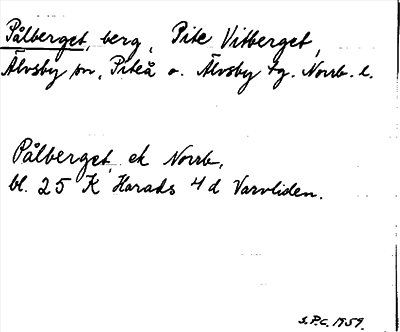 Pålberget, berg, Pite Vitberget,
Älvsby sn, Piteå o. Älvsby tg. Norrb. l.
Pålberget, ek Norrb,
bl. 25 K Harads 4 d Varvliden.
S.P.C. 1959.